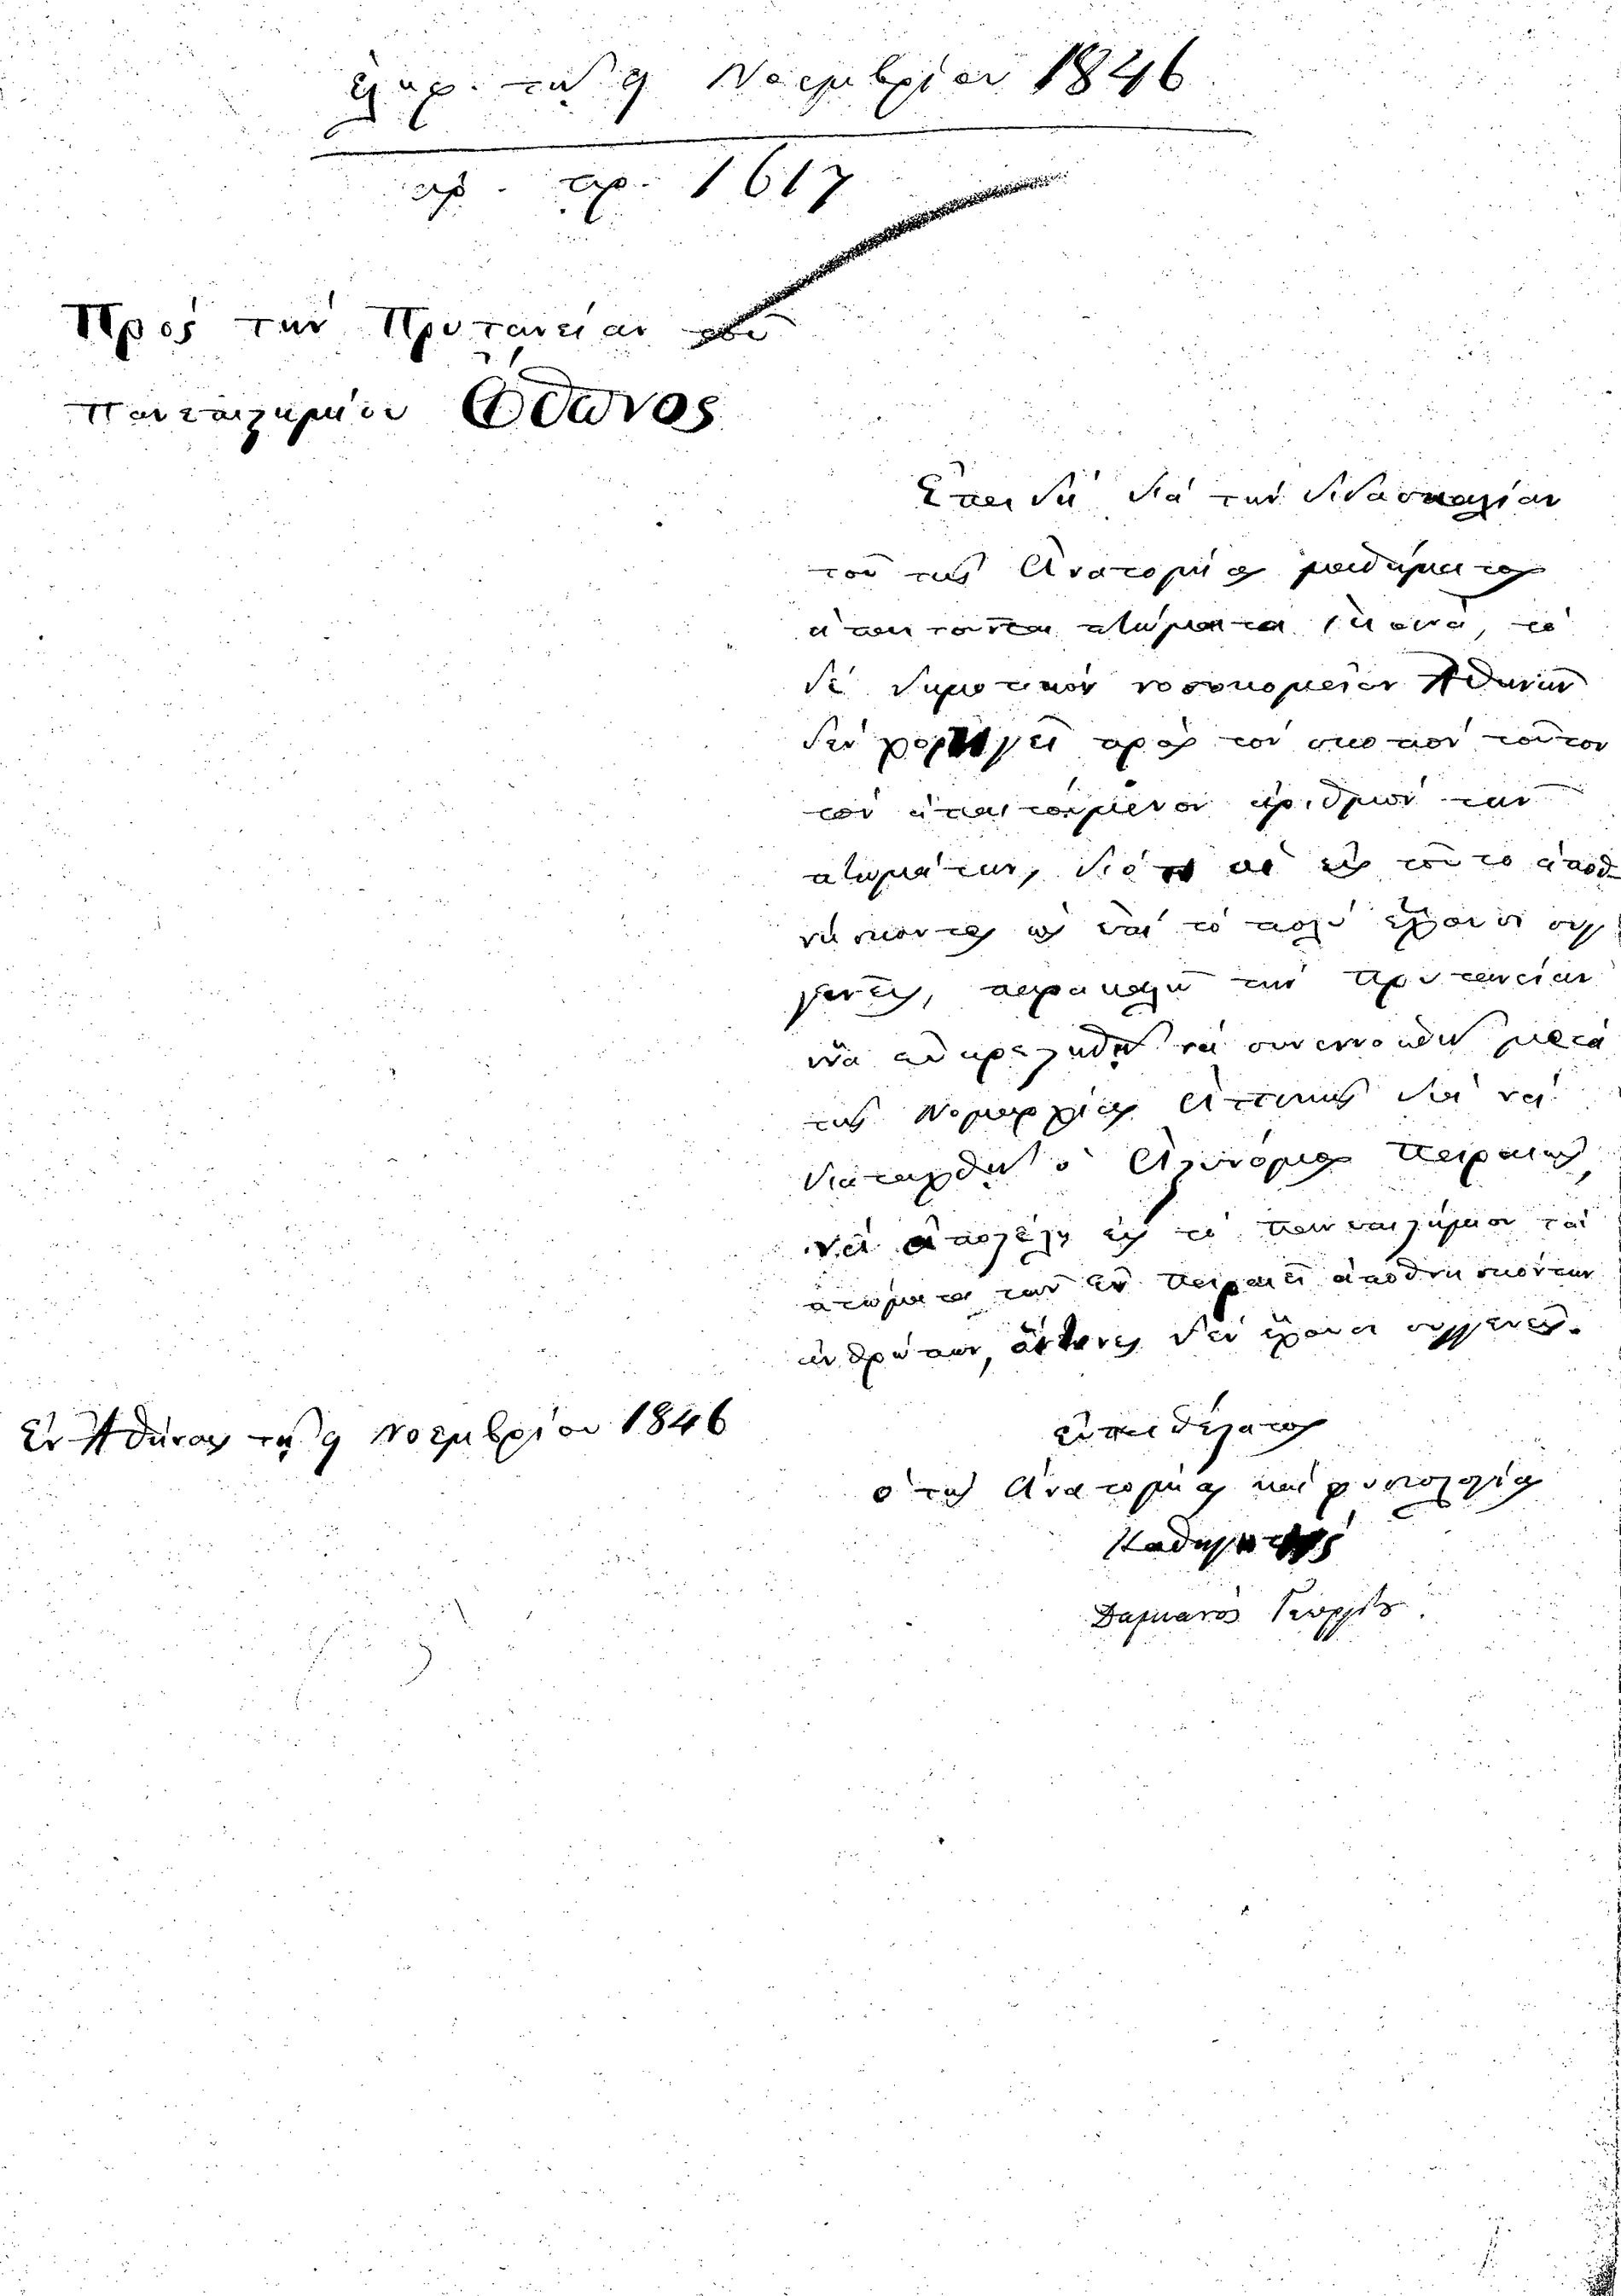 ἐλήφ. τῇ 9 Νοεμβρίου 1846
ἀρ. πρ. 1617
Πρὸς τὴν Πρυτανείαν τοῦ
Πανεπιστημίου Ὄθωνος
Ἐπειδὴ διὰ τὴν διδασκαλίαν
τοῦ τῆς Ἀνατομίας μαθήματος
ἀπαιτοῦνται πτώματα ἱκανὰ, τὸ
δὲ δημοτικὸν νοσοκομεῖον Ἀθηνῶν
δὲν χορηγεῖ πρὸς τὸν σκοπὸν τοῦτον
τὸν ἀπαιτούμενον ἀριθμὸν τῶν
πτωμάτων, διότι οἱ εἰς τοῦτο ἀποθ-
νήσκοντες ὡς ἐπὶ τὸ πολὺ ἔχουσι συγ
γενεῖς, παρακαλῶ τὴν Πρυτανείαν
ἵνα εὐαρεστηθῇ νὰ συνεννοηθῇ μετὰ
τῆς Νομαρχίας Ἀττικῆς διὰ νὰ
διαταχθῇ ὁ Ἀστυνόμος Πειραιῶς,
νὰ ἀποστέλλῃ εἰς τὸ Πανεπιστήμιον τὰ
πτώματα τῶν ἐν Πειραιεῖ ἀποθνησκόντων
ἀνθρώπων, οἵτινες δὲν ἔχουσι συγγενεῖς.
Ἐν Ἀθήναις τῇ 9 Νοεμβρίου 1846
εὐπειθέστατος
ὁ τῆς Ἀνατομίας καὶ φυσιολογίας
Καθηγητὴς
Δαμιανὸς Γεωργίου.